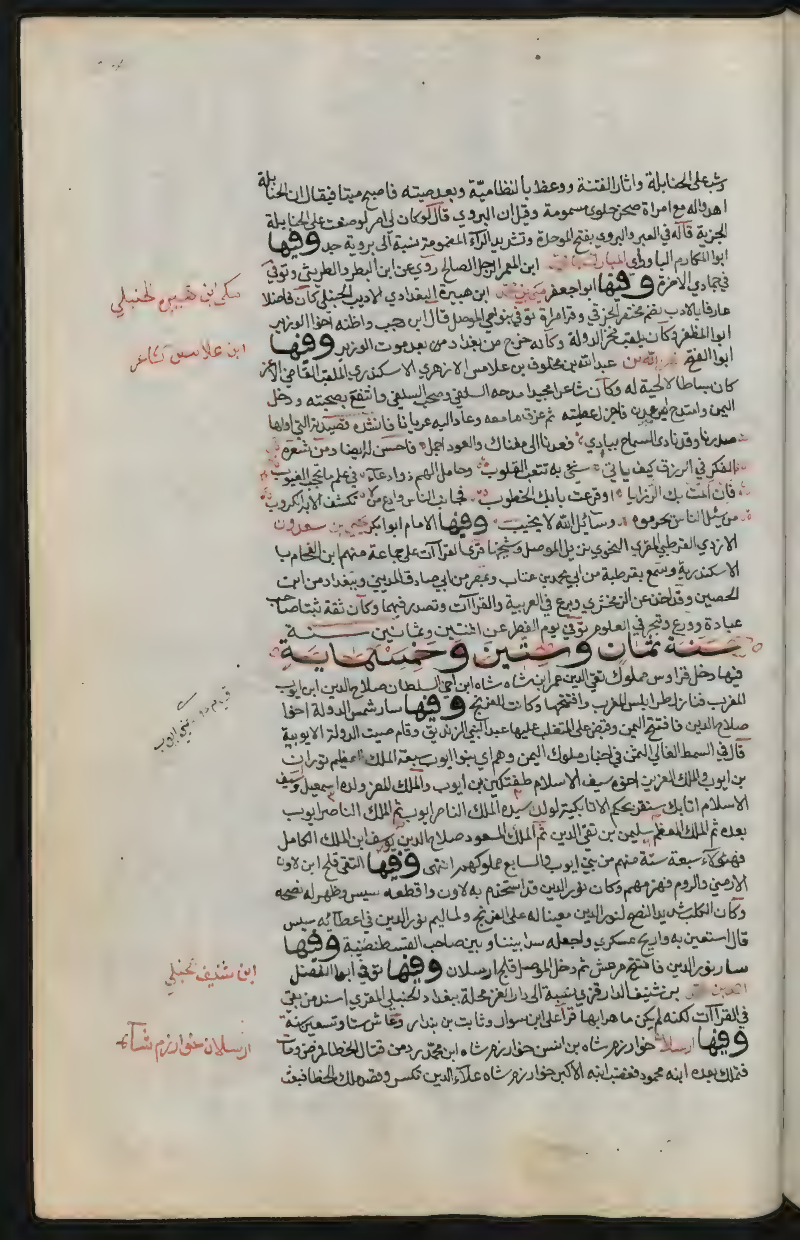 وشغب على الحنابلة واثار الفتنة ووعظ بالنظامية وبعد صيته فاصبح ميتا فيقال ان الحنابلة
اهدوا له مع امراة صحن حلوى مسمومة وقيل ان البروي قال لو كان لي امر لوضعت على الحنابلة
الجزية قاله في العبر والبروي بفتح الموحدة وتشديد الرآء المضمومة نسبة الى بروية جد وفيها
ابو المكارم الباورائي المبارك بن ابن المعمر الرجل الصالح روي عن ابن البطر والطريثيثي وتوفي
في جمادي الاخرة وفيها ابو جعفر مكي بن ابن هبيرة البغدادي الاديب الحنبلي كان فاضلا
عارفا بالادب نظم مختصر الخرقي وقرا مرارا توفي بنواحي الموصل قال ابن رجب واظنه اخو الوزير
ابو المظفر وكان يلقب فخر الدولة وكانه خرج من بغداد من بعد موت الوزير وفيها
ابو الفتح نصر الله بن عبد الله بن مخلوف بن علامس الازهري الاسكندري الملقب القاضي الاعز
كان سناطا لا لحية له وكان شاعرا مجيدا مدحه السلفي وصحب السلفي وانتفع بصحبته ودخل
اليمن وامتدح بعدن فاجزل عطيته ثم غرق ما معه وعاد اليه عريانا فانشده قصيدته التي اولها
صدرنا وقد نادى السماح بنا ردوا فعدنا الى مغناك والعود احمد فاحسن له ايضا ومن شعره
الفكر في الرزق كيف ياتي شئ به تتعب القلوب وحامل الهم ذو ادعاء في علم ما تحجب الغيوب
فان المت بك الرزايا او قرعت بابك الخطوب فجانب الناس وادع من تكشف الا به الكروب
من يسئل الناس يحرموه وسائل الله لا يخيب وفيها الامام ابو بكر يحيى بن سعدون
الازدي القرطبي المقري النحوي نزيل الموصل وشيخها قرا القرآات على جماعة منهم ابن الفحام با
الاسكندرية وسمع بقرطبة من ابي محمد بن عتاب وبمصر من ابي صادق المديني وببغداد من ابن
الحصين وقد اخذ عن الزمخشري وبرع في العربية والقراآت وتصدر فيهما وكان ثقة ثبتا صاحب
عبادة وورع وتبحر في العلوم توفي يوم الفطر عن اثنتين وثمانين سنة
سنة ثمان وستين وخمسماية
فيها دخل قراوس مملوك تقي الدين عمر ابن شاه شاه ابن اخي السلطان صلاح الدين ابن ايوب
المغرب فنازل طرابلس المغرب وافتتحها وكانت للفرنج وفيها سار شمس الدولة اخوا
صلاح الدين فافتتح اليمن وقبض على المتغلب عليها عبد النبي الزنديق وقام صيت الدولة الايوبية
قال في السمط الغالي الثمن في اخبار ملوك اليمن وهم اي بنوا ايوب سبعة الملك المعظم توران
بن ايوب والملك العزيز اخوه سيف الاسلام طغتكين بن ايوب والملك المعز ولده اسمعيل وسيف
الاسلام اتابك سنقر بحكم الاتابكية لولد سيده الملك الناصر ايوب ثم الملك الناصر ايوب
بعده ثم الملك المعظم سليمن بن تقي الدين ثم الملك المسعود صلاح الدين يوسف ابن الملك الكامل
فهؤلآء سبعة ستة منهم من بني ايوب والسابع مملوكهم انتهى وفيها التقى قلج ابن لاون
الارمني والروم فهزمهم وكان نور الدين قد استخدم به لاون واقطعه سيس وظهر له نصحه
وكان الكلب شديد النصح لنور الدين معينا له على الفرنج ولما ليم نور الدين في اعطآئه سيس
قال استعين به واريح عسكري واجعله سدا بيننا وبين صاحب القسطنطينية وفيها
سار نور الدين فافتتح مرعش ثم دخل الموصل قلج ارسلان وفيها توفي ابو الفضل
احمد بن بن شنيف الدارقزي نسبة الى دار القز محلة ببغداد الحنبلي المقري اسند من بقي
في القرآات لكنه لم يكن ماهرا بها قرا على ابن سوار وثابت بن بندار وعاش ستا وتسعين سنة
وفيها ارسلان خوارزم شاه بن اتسز خوارزم شاه ابن محمد رد من قتال الخطا فمرض ومات
فتملك بعده ابنه محمود فغضب ابنه الاكبر خوارزم شاه علاء الدين تكس وقصد ملك الخطا فبعث
مكي ابن هبيره الحنبلي
ابن علامس الشاعر
ابن شنيف الحنبلي
ارسلان خوارزم شاه